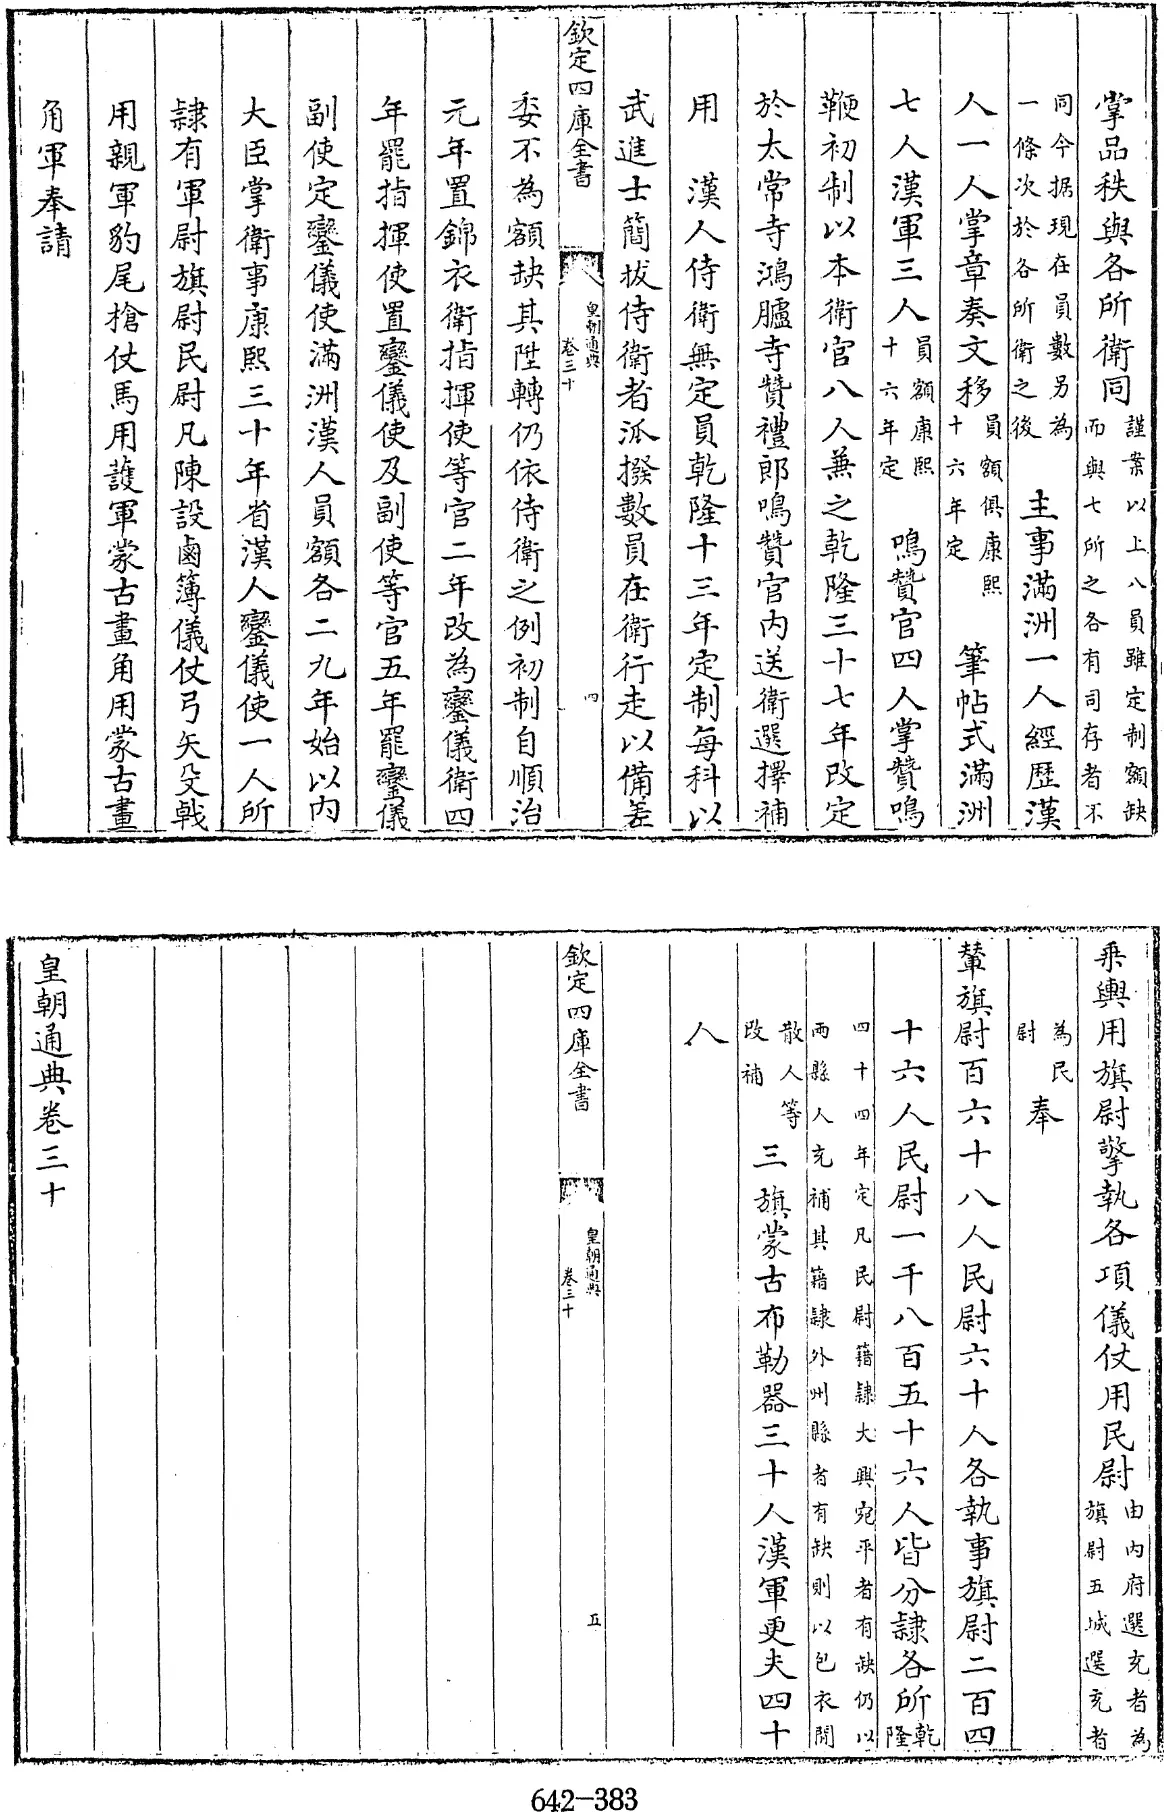 掌品秩與各所衛同謹案以上八員雖定制額缺而與七所之各有司存者不
同今据現在員數另為一條次於各所衛之後　主事滿洲一人經歴漢
人一人掌章奏文移員額俱康熙十六年定　筆帖式滿洲
七人漢軍三人員額康熙十六年定　鳴贊官四人掌贊鳴
鞭初制以本衛官八人兼之乾隆三十七年改定
於太常寺鴻臚寺贊禮郎鳴贊官内送衛選擇補
用　漢人侍衛無定員乾隆十三年定制每科以
武進士簡拔侍衛者派撥數員在衛行走以備差
欽定四庫全書　皇朝通典卷三十　四
委不為額缺其陞轉仍依侍衛之例初制自順治
元年置錦衣衛指揮使等官二年改為鑾儀衛四
年罷指揮使置鑾儀使及副使等官五年罷鑾儀
副使定鑾儀使滿洲漢人員額各二九年始以内
大臣掌衛事康熙三十年省漢人鑾儀使一人所
隷有軍尉旗尉民尉凡陳設鹵簿儀仗弓矢殳戟
用親軍豹尾槍仗馬用護軍蒙古畫角用蒙古畫
角軍奉請
乗輿用旗尉擎執各項儀仗用民尉由内府選充者為旗尉五城選充者
為民尉　奉
輦旗尉百六十八人民尉六十人各執事旗尉二百四
十六人民尉一千八百五十六人皆分隷各所乾隆
四十四年定凡民尉籍隷大興宛平者有缺仍以兩縣人充補其籍隷外州縣者有缺則以包衣閒
散人等改補　三旗蒙古布勒器三十人漢軍更夫四十
人
欽定四庫全書　皇朝通典卷三十　五
皇朝通典卷三十
642-383